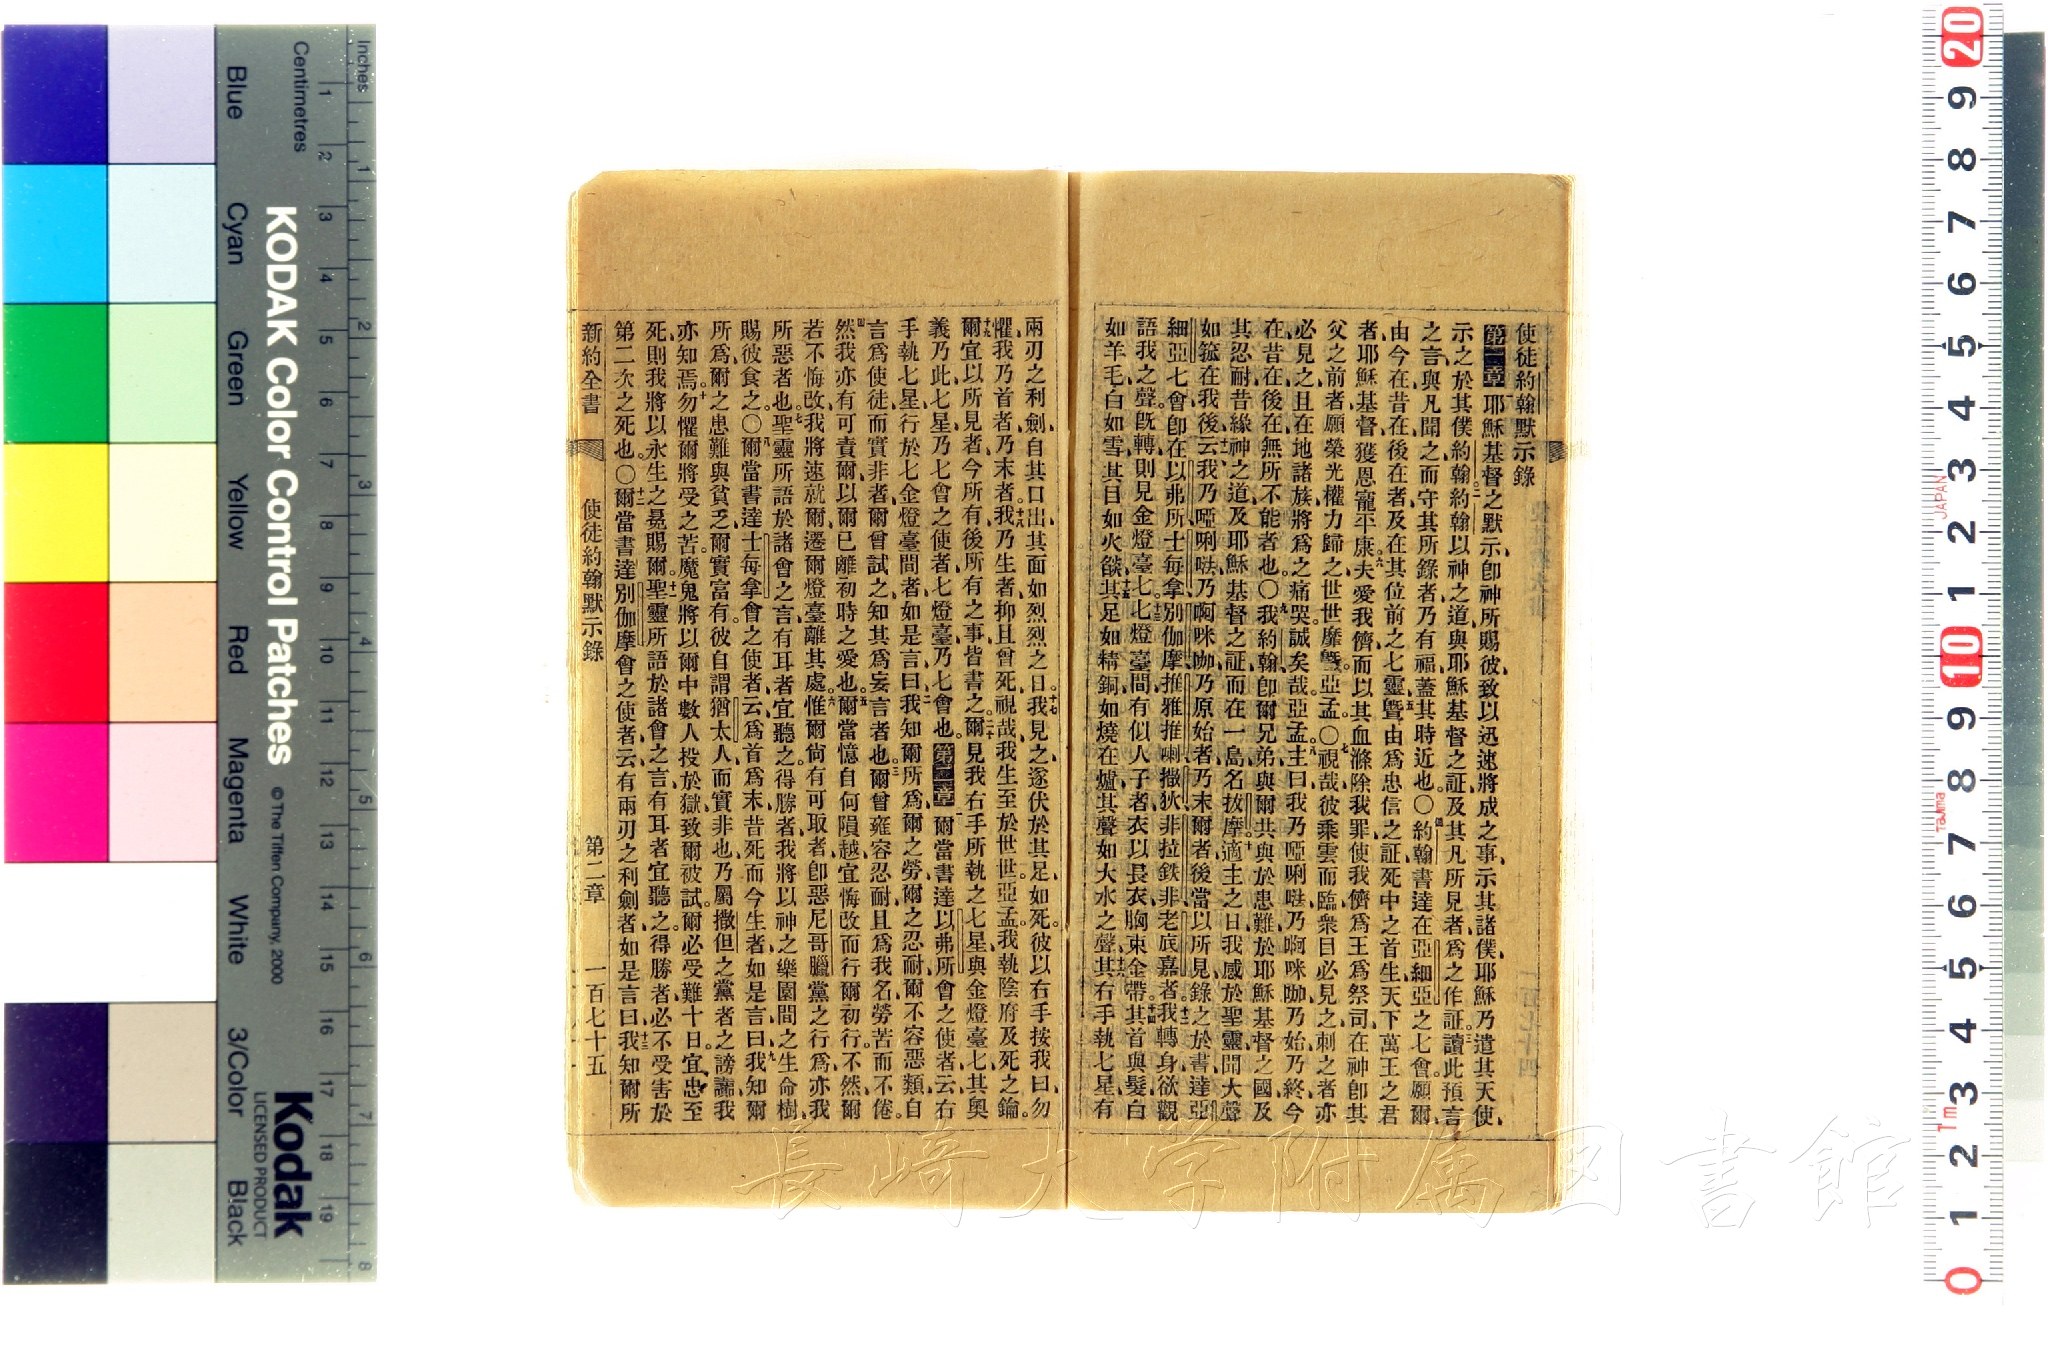 使徒約翰默示錄
第一章耶穌基督之默示、卽神所賜彼、致以迅速將成之事、示其諸僕、耶穌乃遣其天使、
示之於其僕約翰。二約翰以神之道、與耶穌基督之証、及其凡所見者、爲之作証。三讀此預言
之言、與凡聞之而守其所錄者、乃有福、蓋其時近也。○四約翰書達在亞細亞之七會、願爾
由今在昔在後在者、及在其位前之七靈、五曁由爲忠信之証、死中之首生、天下萬王之君
者、耶穌基督、獲恩寵平康。六夫愛我儕、而以其血滌除我罪、使我儕爲王爲祭司、在神卽其
父之前者、願榮光權力歸之、世世靡曁。亞孟。○七視哉、彼乘雲而臨、衆目必見之、刺之者亦
必見之、且在地諸族、將爲之痛哭、誠矣哉。亞孟。八主曰、我乃啞唎噠、乃啊咪咖、乃始乃終、今
在昔在後在、無所不能者也。○九我約翰、卽爾兄弟、與爾共與於患難、於耶穌基督之國、及
其忍耐、昔緣神之道、及耶穌基督之証、而在一島名拔摩。十適主之日、我感於聖靈、聞大聲
如箛在我後、十一云、我乃啞唎噠、乃啊咪咖、乃原始者、乃末爾者、後當以所見錄之於書、達亞
細亞七會、卽在以弗所、士每拿、別伽摩、推雅推喇、撒狄、非拉鉄非、老底嘉者。十二我轉身欲觀
語我之聲、旣轉、則見金燈臺七。十三七燈臺間、有似人子者、衣以長衣、胸束金帶。十四其首與髮、白
如羊毛、白如雪、其目如火燄、十五其足如精銅、如燒在爐、其聲如大水之聲、十六其右手執七星、有
兩刃之利劍、自其口出、其面如烈烈之日。十七我見之、遂伏於其足如死。彼以右手按我曰、勿
懼、我乃首者、乃末者、十八我乃生者、抑且曾死、視哉、我生至於世世。亞孟。我執陰府及死之鑰。
十九爾宜以所見者、今所有、後所有之事、皆書之。二十爾見我右手所執之七星、與金燈臺七、其奧
義乃此、七星乃七會之使者、七燈臺、乃七會也。第二章一爾當書達以弗所會之使者、云、右
手執七星、行於七金燈臺間者、如是言曰、二我知爾所爲、爾之勞、爾之忍耐、爾不容惡類、自
言爲使徒而實非者、爾曾試之、知其爲妄言者也。三爾曾雍容忍耐、且爲我名勞苦而不倦。
四然我亦有可責爾、以爾已離初時之愛也。五爾當憶自何隕越、宜悔改而行爾初行、不然、爾
若不悔改、我將速就爾、遷爾燈臺離其處。六惟爾尙有可取者、卽惡尼哥臘黨之行爲、亦我
所惡者也。七聖靈所語於諸會之言、有耳者宜聽之。得勝者、我將以神之樂園間之生命樹、
賜彼食之。○八爾當書達士每拿會之使者、云、爲首爲末、昔死而今生者、如是言曰、九我知爾
所爲、爾之患難與貧乏、爾實富有。彼自謂猶太人、而實非也、乃屬撒但之黨者之謗讟、我
亦知焉。十勿懼爾將受之苦、魔鬼將以爾中數人投於獄、致爾被試。爾必受難十日。宜忠至
死、則我將以永生之冕賜爾。十一聖靈所語於諸會之言、有耳者宜聽之。得勝者、必不受害於
第二次之死也。○十二爾當書達別伽摩會之使者、云、有兩刃之利劍者、如是言曰、十三我知爾所
新約全書 使徒約翰默示錄 第二章 一百七十五
長崎大学附属図書館
Inches
Centimetres
KODAK Color Control Patches
© The Tiffen Company, 2000
Kodak
LICENSED PRODUCT
Blue Cyan Green Yellow Red Magenta White 3/Color Black
1 2 3 4 5 6 7 8 9 10 11 12 13 14 15 16 17 18 19
1 2 3 4 5 6 7 8
20 9 8 7 6 5 4 3 2 1 10 9 8 7 6 5 4 3 2 1 0
JAPAN
Tajima
Tm